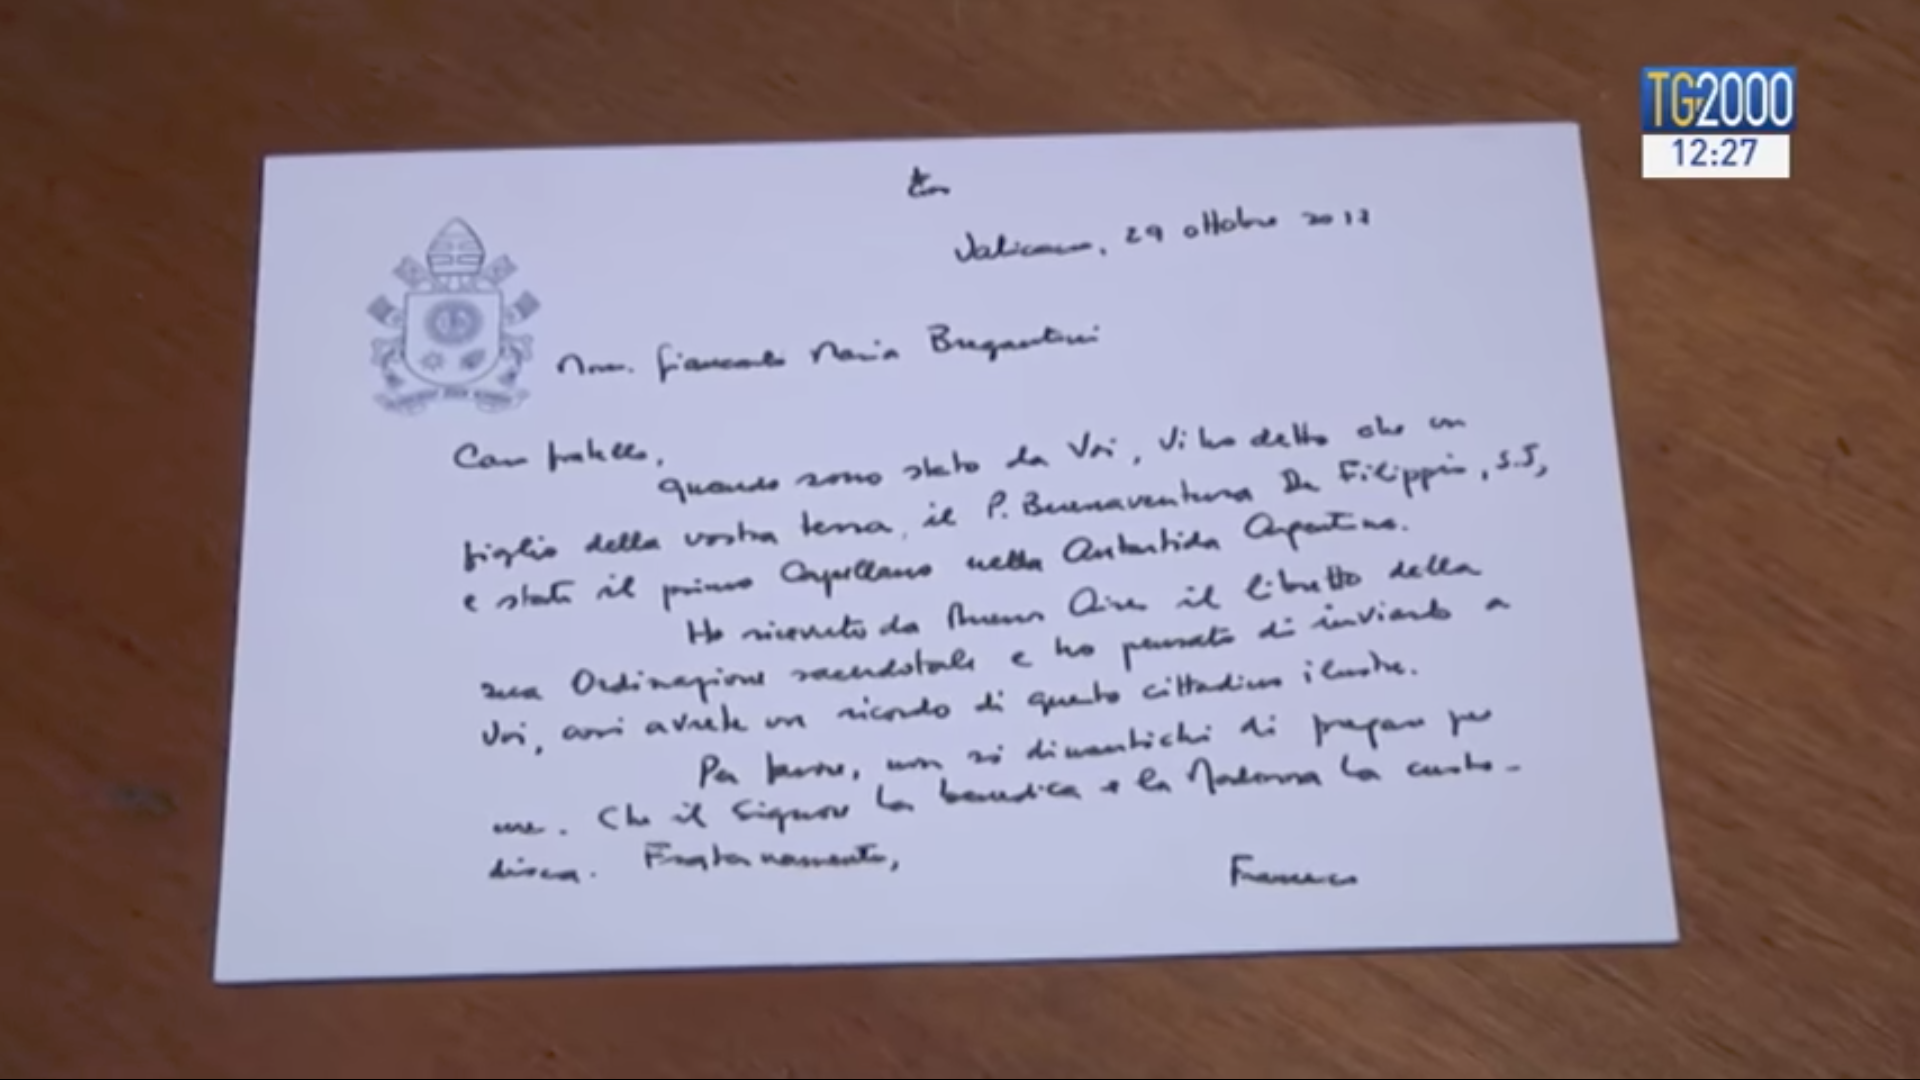 TG2000
12:27
Vaticano, 29 ottobre 2017
Mons. Giancarlo Maria Bregantini
Caro fratello,
quando sono stato da Voi, Vi ho detto che un
figlio della vostra terra, il P. Buenaventura De Filippis, S.J,
e stato il primo Capellano nella Antartida Argentina.
Ho ricevuto da Buenos Aires il libretto della
sua Ordinazione sacerdotale e ho pensato di inviarlo a
Voi, così avrete un ricordo di questo cittadino ilustre.
Per favore, non si dimentichi di pregare per
me. Che il Signore La benedica e la Madonna La custo-
disca. Fraternamente,
Francesco